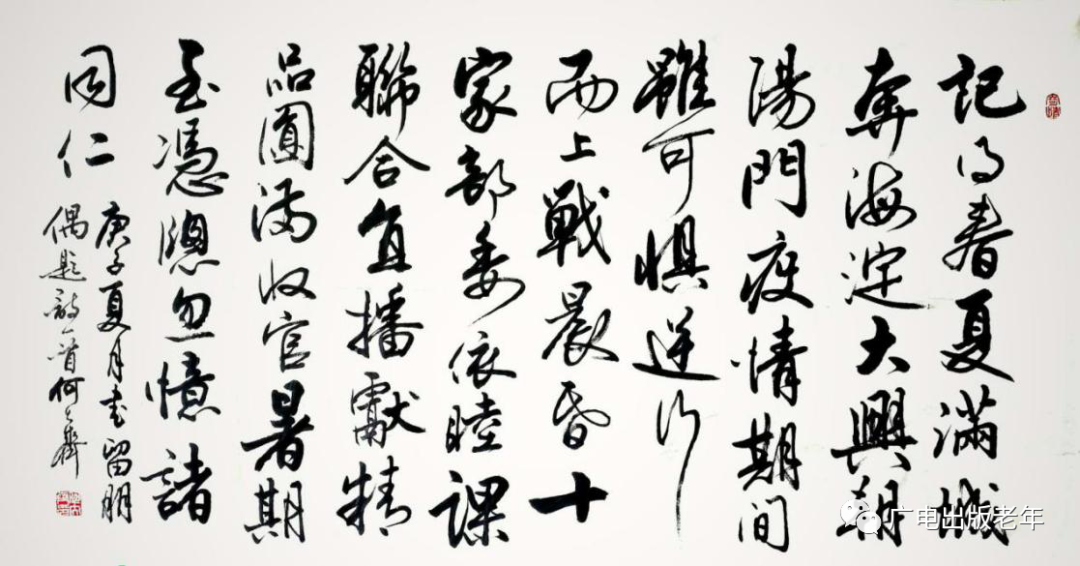 記得春夏滿城
奔海淀大興朝
陽門疫情期间
雖可懼逆行
而上戰晨昏十
家部委依睦課
聯合直播獻精
品圓满收官暑期
至憑牎忽憶諸
同仁
庚子夏月書留朋
偶題詩一首何
广电出版老年